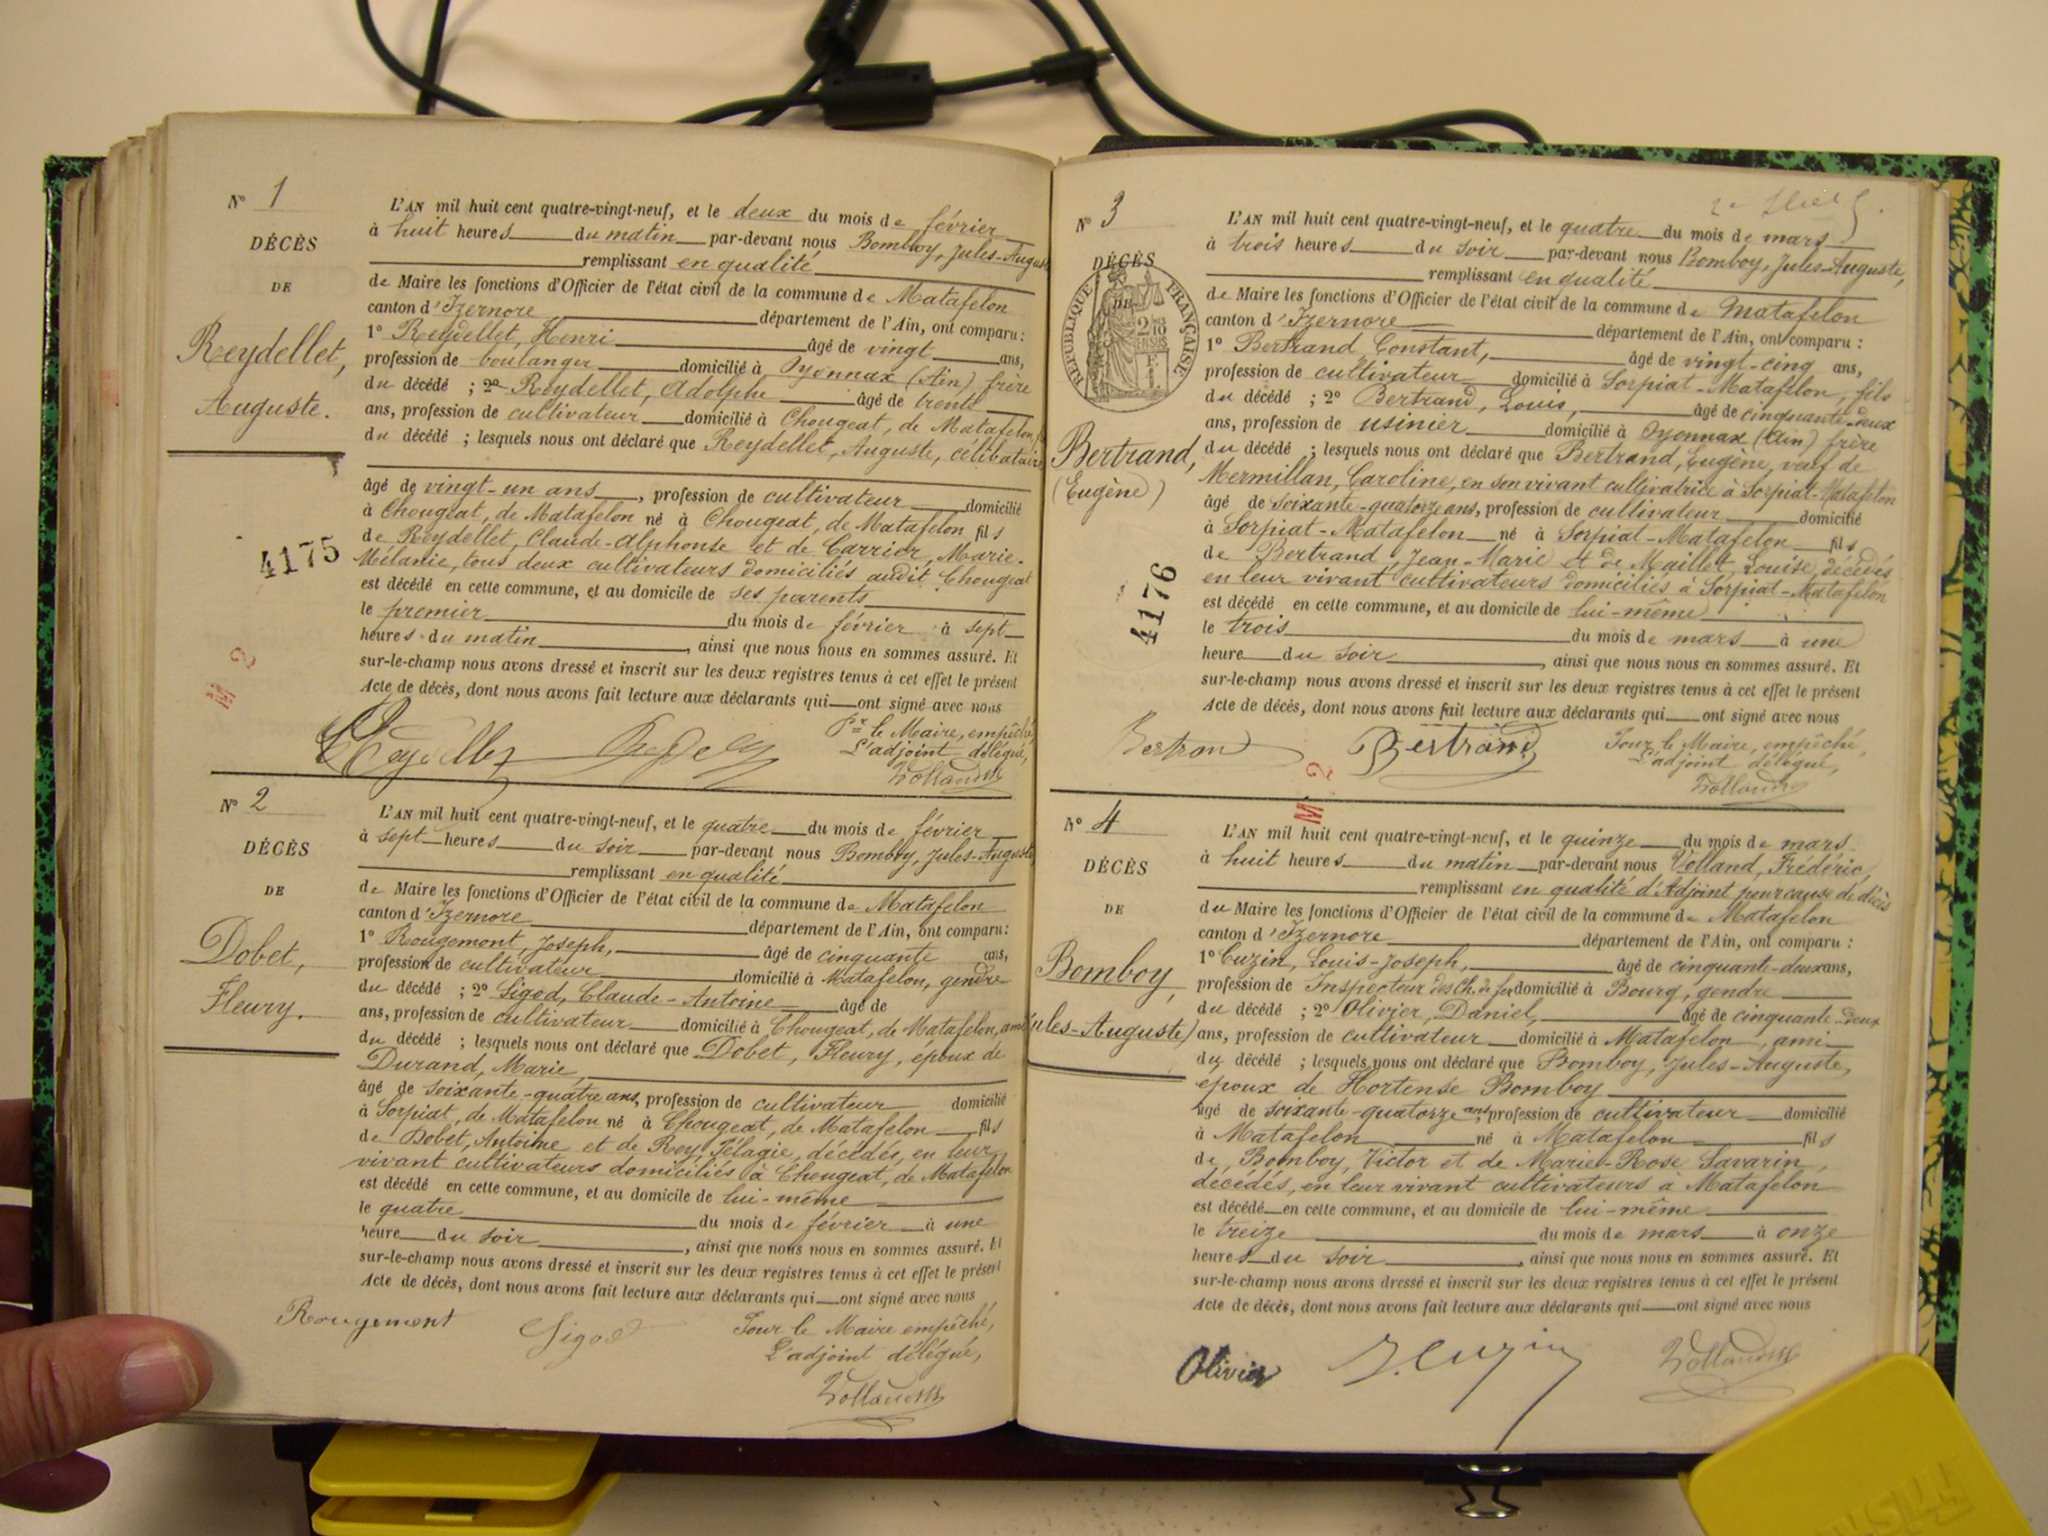 N° 1
DÉCÈS
DE
Reydellet,
Auguste.
4175
M 2
L'AN mil huit cent quatre-vingt-neuf, et le deux du mois de février
à huit heures du matin par-devant nous Bomboy, Jules-Auguste
remplissant en qualité
de Maire les fonctions d'Officier de l'état civil de la commune de Matafelon
canton d'Izernore département de l'Ain, ont comparu :
1° Reydellet, Henri âgé de vingt ans,
profession de boulanger domicilié à Oyonnax (Ain) frère
du décédé ; 2° Reydellet, Adolphe âgé de trente
ans, profession de cultivateur domicilié à Chougeat, de Matafelon,
du décédé ; lesquels nous ont déclaré que Reydellet, Auguste, célibataire
âgé de vingt-un ans, profession de cultivateur domicilié
à Chougeat, de Matafelon né à Chougeat, de Matafelon fils
de Reydellet, Claude-Alphonse et de Carrier, Marie-
Mélanie, tous deux cultivateurs domiciliés audit Chougeat
est décédé en cette commune, et au domicile de ses parents
le premier du mois de février à sept
heures du matin, ainsi que nous nous en sommes assuré. Et
sur-le-champ nous avons dressé et inscrit sur les deux registres tenus à cet effet le présent
Acte de décès, dont nous avons fait lecture aux déclarants qui ont signé avec nous
Pr le Maire, empêché
L'adjoint délégué,
Volland
N° 2
DÉCÈS
DE
Dobet,
Fleury.
L'AN mil huit cent quatre-vingt-neuf, et le quatre du mois de février
à sept heures du soir par-devant nous Bomboy, Jules-Auguste
remplissant en qualité
de Maire les fonctions d'Officier de l'état civil de la commune de Matafelon
canton d'Izernore département de l'Ain, ont comparu :
1° Rougemont, Joseph, âgé de cinquante ans,
profession de cultivateur domicilié à Matafelon, gendre
du décédé ; 2° Sigod, Claude-Antoine âgé de
ans, profession de cultivateur domicilié à Chougeat, de Matafelon, ami
du décédé ; lesquels nous ont déclaré que Dobet, Fleury, époux de
Durand, Marie,
âgé de soixante-quatre ans, profession de cultivateur domicilié
à Sorpiat, de Matafelon né à Chougeat, de Matafelon fils
de Dobet, Antoine et de Rey, Pélagie, décédés, en leur
vivant cultivateurs domiciliés à Chougeat, de Matafelon
est décédé en cette commune, et au domicile de lui-même
le quatre du mois de février à une
heure du soir, ainsi que nous nous en sommes assuré. Et
sur-le-champ nous avons dressé et inscrit sur les deux registres tenus à cet effet le présent
Acte de décès, dont nous avons fait lecture aux déclarants qui ont signé avec nous
Rougemont Sigod Pour le Maire empêché,
L'adjoint délégué,
Volland
N° 3
DÉCÈS
DE
RÉPUBLIQUE FRANÇAISE
Bertrand,
(Eugène)
4176
M 2
L'AN mil huit cent quatre-vingt-neuf, et le quatre du mois de mars
à trois heures du soir par-devant nous Bomboy, Jules-Auguste,
remplissant en qualité
de Maire les fonctions d'Officier de l'état civil de la commune de Matafelon
canton d'Izernore département de l'Ain, ont comparu :
1° Bertrand Constant, âgé de vingt-cinq ans,
profession de cultivateur domicilié à Sorpiat-Matafelon, fils
du décédé ; 2° Bertrand, Louis, âgé de cinquante-deux
ans, profession de usinier domicilié à Oyonnax (Ain) frère
du décédé ; lesquels nous ont déclaré que Bertrand, Eugène, veuf de
Mermillan, Caroline, en son vivant cultivatrice à Sorpiat-Matafelon
âgé de soixante-quatorze ans, profession de cultivateur domicilié
à Sorpiat-Matafelon né à Sorpiat-Matafelon fils
de Bertrand, Jean-Marie et de Maillet, Louise, décédés
en leur vivant cultivateurs domiciliés à Sorpiat-Matafelon
est décédé en cette commune, et au domicile de lui-même
le trois du mois de mars à une
heure du soir, ainsi que nous nous en sommes assuré. Et
sur-le-champ nous avons dressé et inscrit sur les deux registres tenus à cet effet le présent
Acte de décès, dont nous avons fait lecture aux déclarants qui ont signé avec nous
Bertrand Bertrand Pour le Maire, empêché,
L'adjoint délégué,
Volland
N° 4
DÉCÈS
DE
Bomboy,
Jules-Auguste)
L'AN mil huit cent quatre-vingt-neuf, et le quinze du mois de mars
à huit heures du matin par-devant nous Volland, Frédéric,
remplissant en qualité d'Adjoint pour cause de décès
du Maire les fonctions d'Officier de l'état civil de la commune de Matafelon
canton d'Izernore département de l'Ain, ont comparu :
1° Cuzin, Louis-Joseph, âgé de cinquante-deux ans,
profession de Inspecteur des Ch. de fer domicilié à Bourg, gendre
du décédé ; 2° Olivier, Daniel, âgé de cinquante-deux
ans, profession de cultivateur domicilié à Matafelon, ami
du décédé ; lesquels nous ont déclaré que Bomboy, Jules-Auguste,
époux de Hortense Bomboy
âgé de soixante-quatorze ans, profession de cultivateur domicilié
à Matafelon né à Matafelon fils
de Bomboy, Victor et de Marie-Rose Savarin,
décédés, en leur vivant cultivateurs à Matafelon
est décédé en cette commune, et au domicile de lui-même
le treize du mois de mars à onze
heures du soir, ainsi que nous nous en sommes assuré. Et
sur-le-champ nous avons dressé et inscrit sur les deux registres tenus à cet effet le présent
Acte de décès, dont nous avons fait lecture aux déclarants qui ont signé avec nous
Olivier J. Cuzin Volland